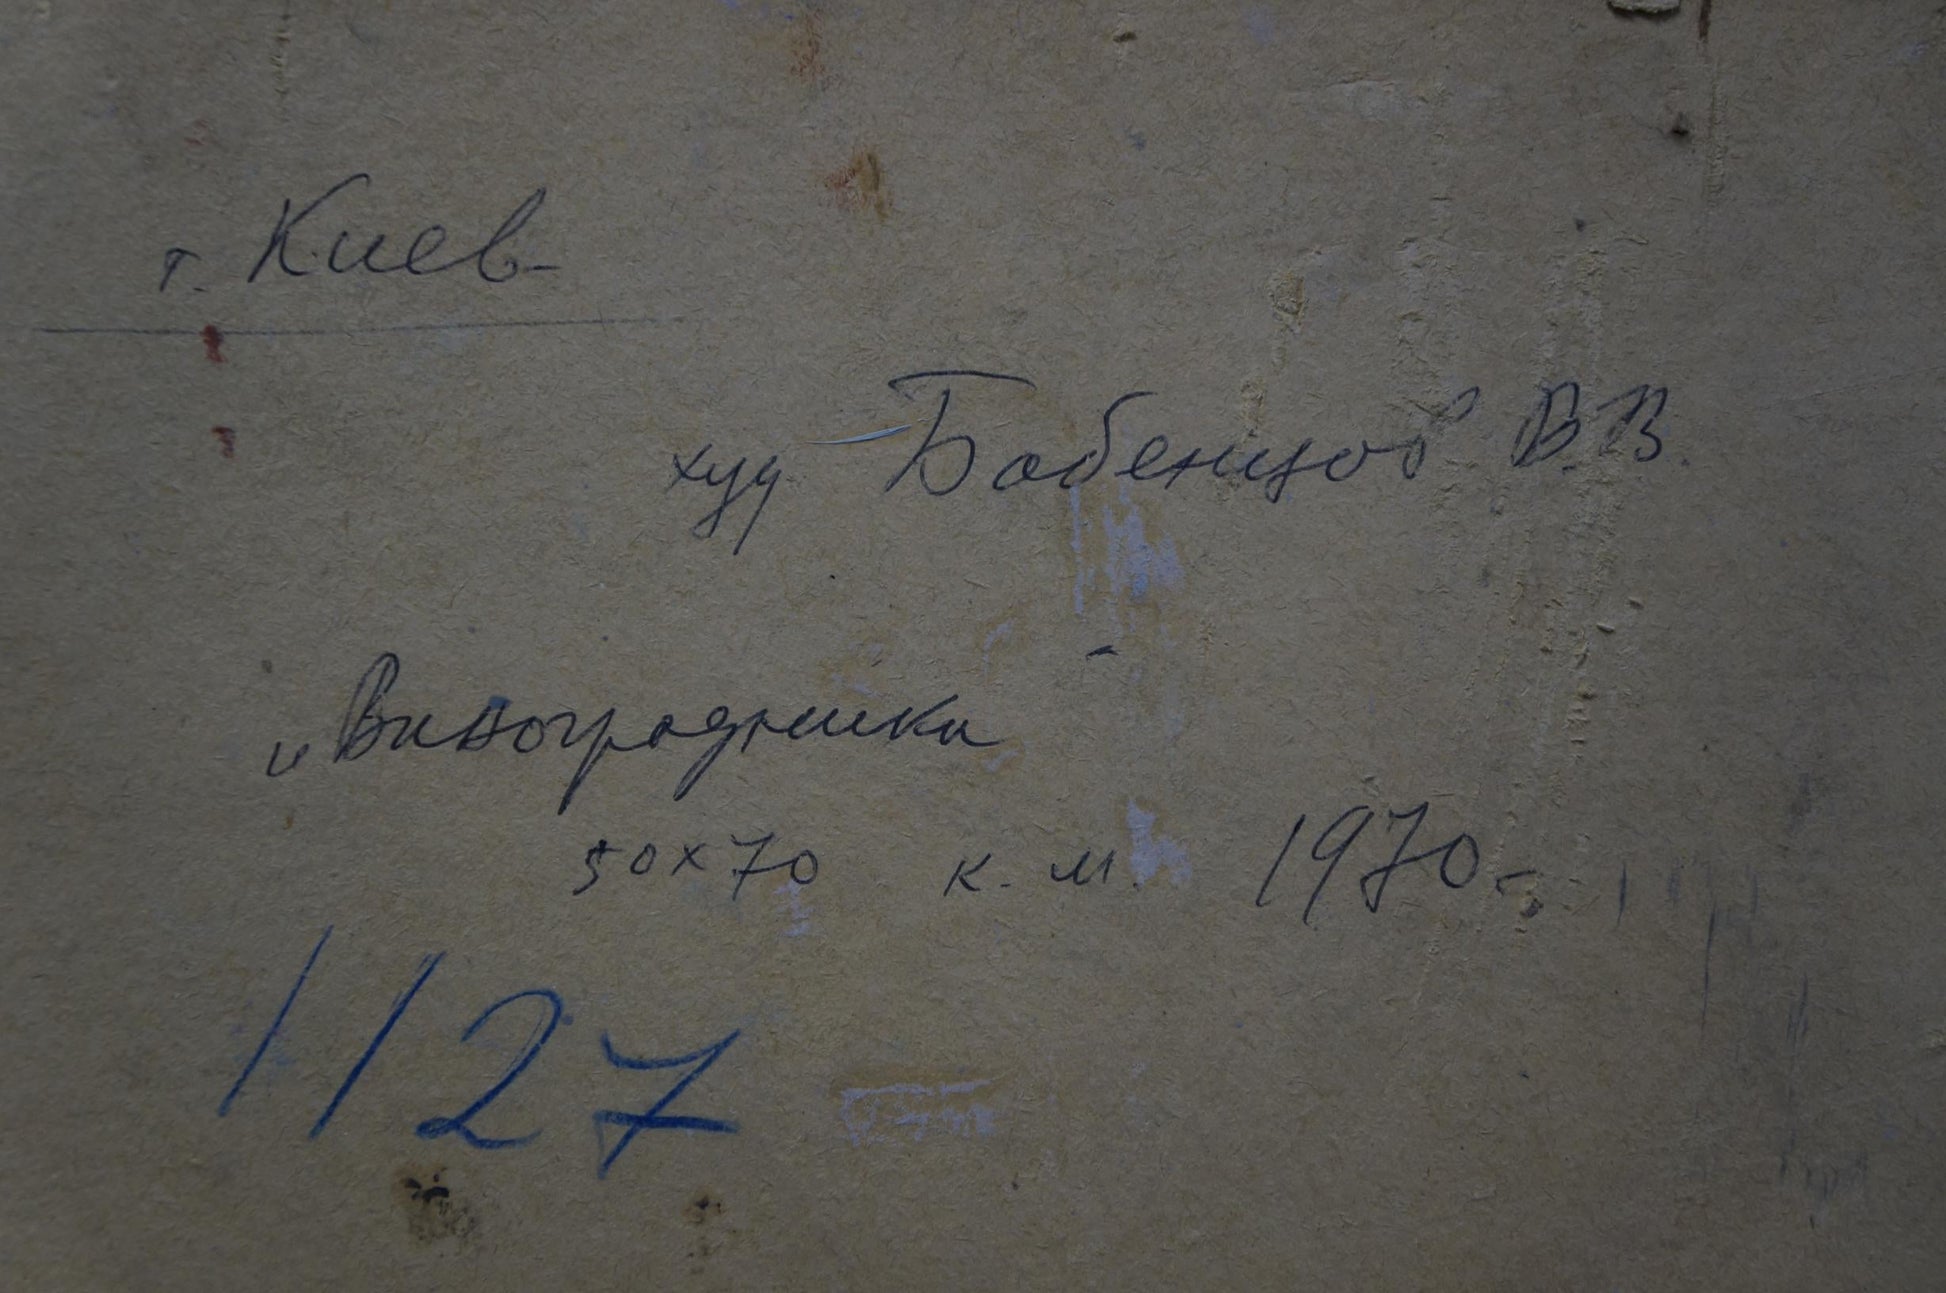 г. Киев
худ Бабенцов В.В.
„Виноградники
50x70 к. м. 1970-
1127